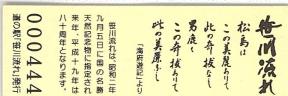 笹川流れ
松島は
この美麗ありて
此の奇抜なく
男鹿も
この奇抜ありて
此の美麗なし
「海府遊記」より
笹川流れは、昭和二年
九月五日に国の名勝
天然記念物に指定され
来年、平成十九年は
八十周年となります。
道の駅「笹川流れ」発行
000444